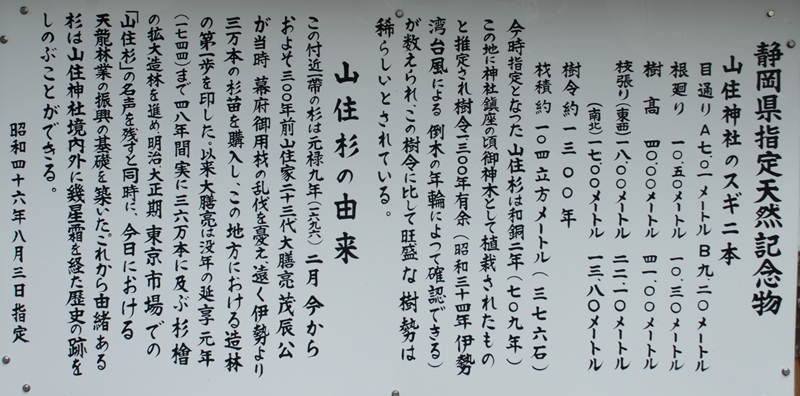 静岡県指定天然記念物
山住神社のスギ二本
目通り A七.〇一メートル B九.二〇メートル
根廻り 一〇.五〇メートル 一〇.三〇メートル
樹高 四〇.〇〇メートル 四一.〇〇メートル
枝張り(東西)一八.〇〇メートル 二二.一〇メートル
(南北)一七.〇〇メートル 一三.八〇メートル
樹令約一三〇〇年
材積約一〇四立方メートル(三七六石)
今時指定となつた山住杉は和銅二年(七〇九年)
この地に神社鎮座の頃御神木として植栽されたもの
と推定され樹令一三〇〇年有余(昭和三十四年伊勢
湾台風による倒木の年輪によつて確認できる)
が数えられ、この樹令に比して旺盛な樹勢は
稀らしいとされている。
山住杉の由来
この付近一帯の杉は元禄九年(一六九六)二月今から
およそ三〇〇年前山住家二十三代大膳亮茂辰公
が当時幕府御用材の乱伐を憂え遠く伊勢より
三万本の杉苗を購入し、この地方における造林
の第一歩を印した。以来大膳亮は没年の延享元年
(一七四四)まで四八年間実に三六万本に及ぶ杉檜
の拡大造林を進め、明治大正期東京市場での
「山住杉」の名声を残すと同時に、今日における
天龍林業の振興の基礎を築いた。これから由緒ある
杉は山住神社境内外に幾星霜を経た歴史の跡を
しのぶことができる。
昭和四十六年八月三日指定